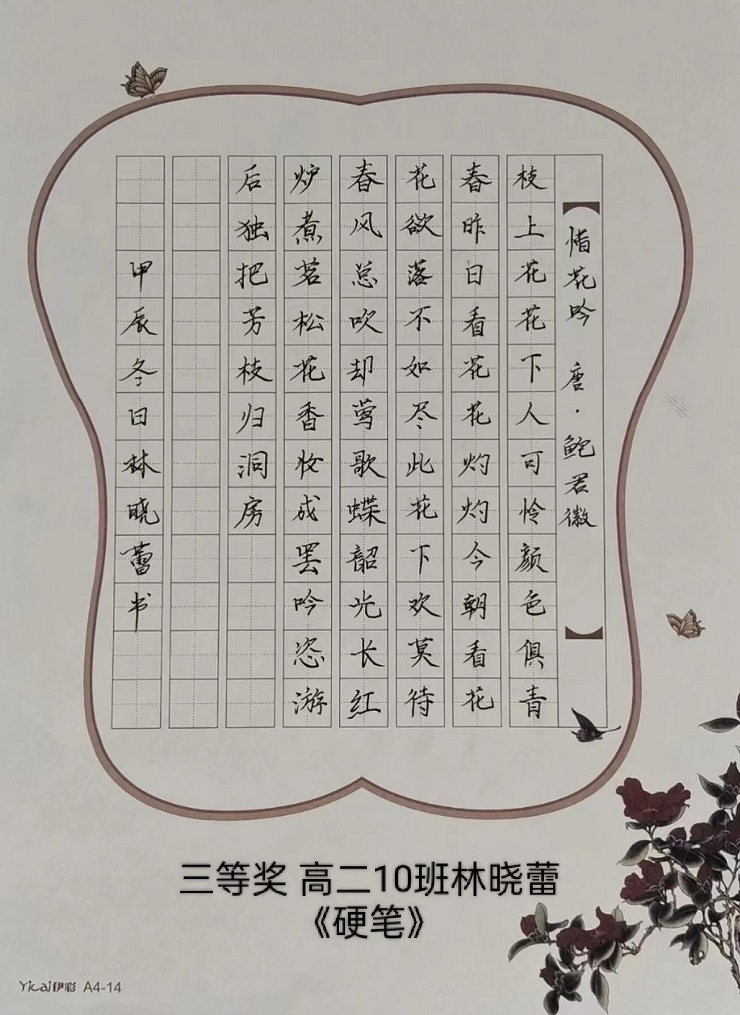 惜花吟 唐·鲍君徽
枝上花花下人可怜颜色俱青
春昨日看花花灼灼今朝看花
花欲落不如尽此花下欢莫待
春风总吹却莺歌蝶韶光长红
炉煮茗松花香妆成罢吟恣游
后独把芳枝归洞房
甲辰冬日林晓蕾书
三等奖 高二10班林晓蕾
《硬笔》
Yicai伊彩 A4-14